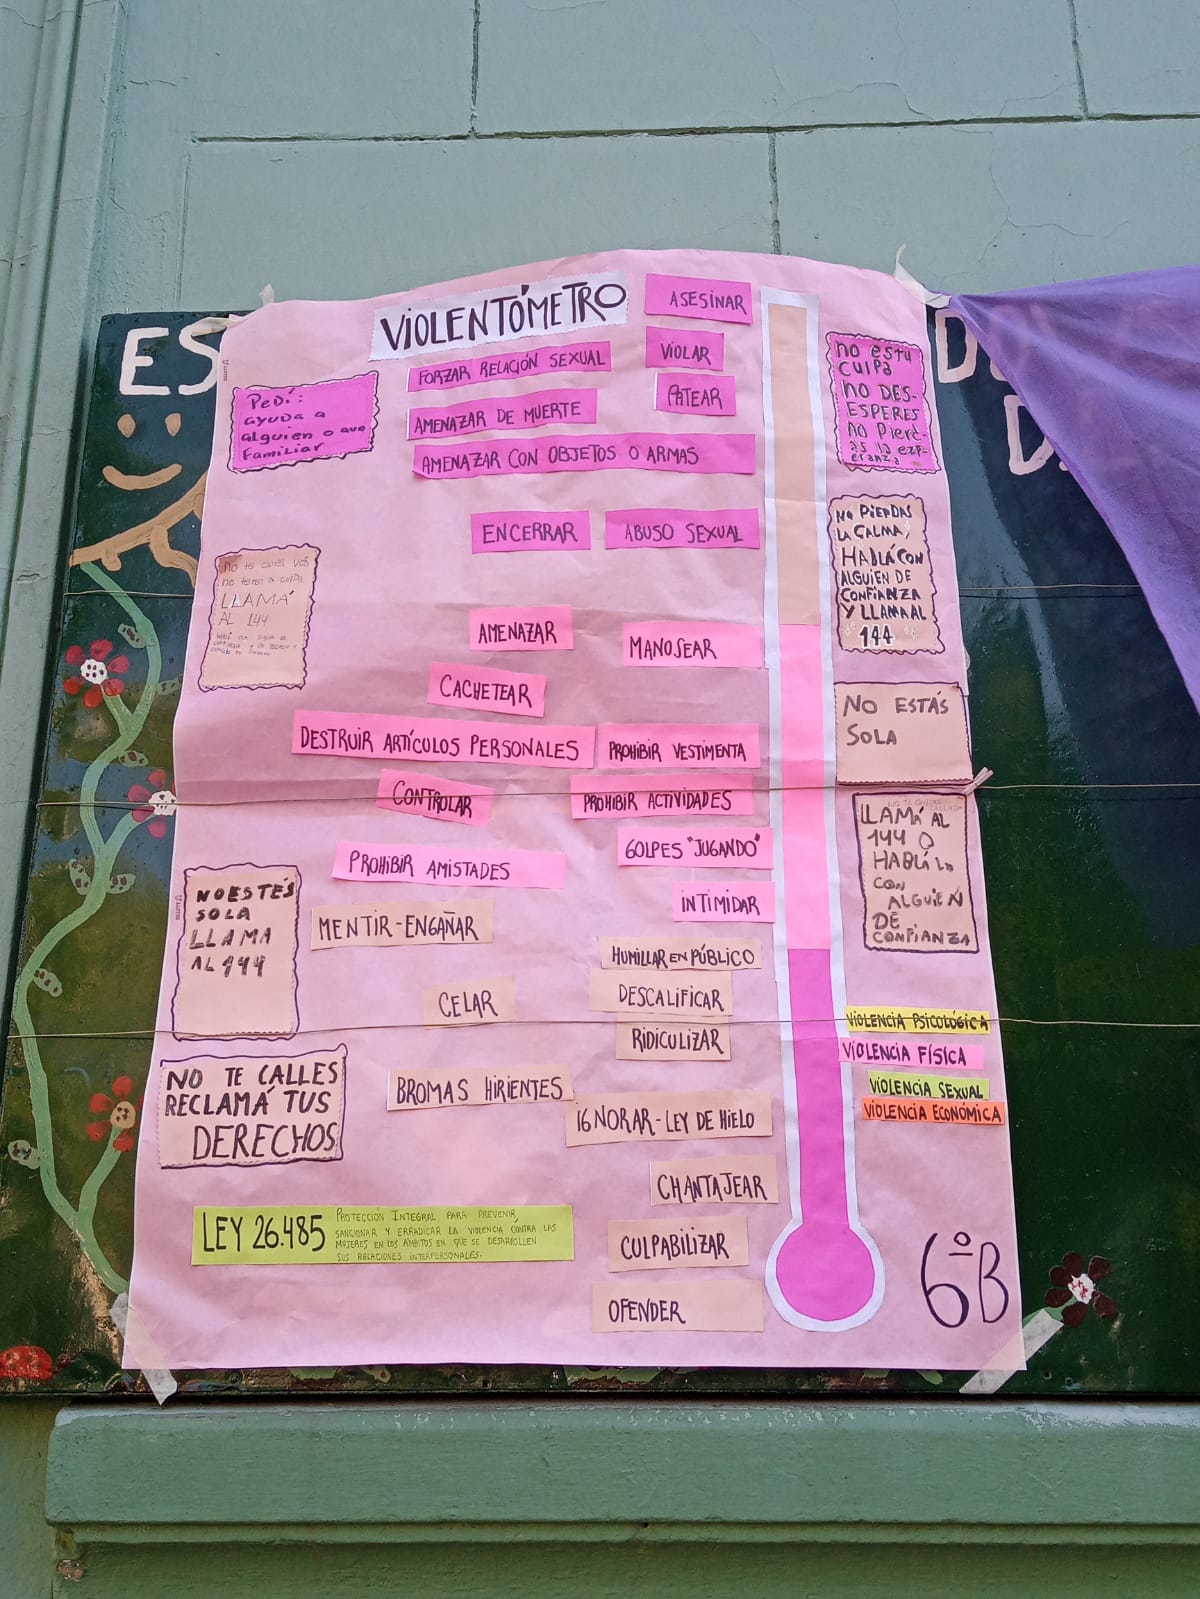 ES
VIOLENTÓMETRO
ASESINAR
VIOLAR
FORZAR RELACIÓN SEXUAL
PATEAR
AMENAZAR DE MUERTE
AMENAZAR CON OBJETOS O ARMAS
ENCERRAR
ABUSO SEXUAL
AMENAZAR
MANOSEAR
CACHETEAR
DESTRUIR ARTÍCULOS PERSONALES
PROHIBIR VESTIMENTA
CONTROLAR
PROHIBIR ACTIVIDADES
GOLPES "JUGANDO"
PROHIBIR AMISTADES
INTIMIDAR
MENTIR-ENGAÑAR
HUMILLAR EN PÚBLICO
CELAR
DESCALIFICAR
RIDICULIZAR
BROMAS HIRIENTES
IGNORAR-LEY DE HIELO
CHANTAJEAR
CULPABILIZAR
OFENDER
Pedí:
ayuda a
alguien o a
familiar
No te calles vos
no tenes a culpa
LLAMÁ
AL 144
NO ESTÉS
SOLA
LLAMA
AL 144
NO TE CALLES
RECLAMÁ TUS
DERECHOS
LEY 26.485
PROTECCIÓN INTEGRAL PARA PREVENIR,
SANCIONAR Y ERRADICAR LA VIOLENCIA CONTRA LAS
MUJERES EN LOS ÁMBITOS EN QUE SE DESARROLLEN
SUS RELACIONES INTERPERSONALES.
no es tu
culpa
no DES-
ESPERES
no Pierd-
as la esp-
eranza
NO PIERDAS
LA CALMA,
HABLÁ CON
ALGUIEN DE
CONFIANZA
Y LLAMA AL
144
NO ESTÁS
SOLA
LLAMÁ AL
144 O
HABLÁ
CON
ALGUIEN
DE
CONFIANZA
VIOLENCIA PSICOLÓGICA
VIOLENCIA FÍSICA
VIOLENCIA SEXUAL
VIOLENCIA ECONÓMICA
6ºB